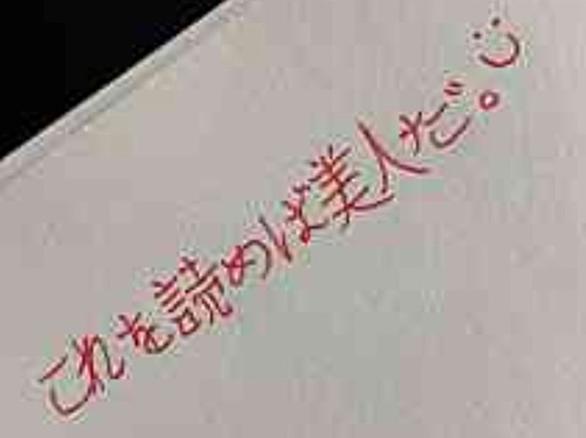 これを読めば美人だ。